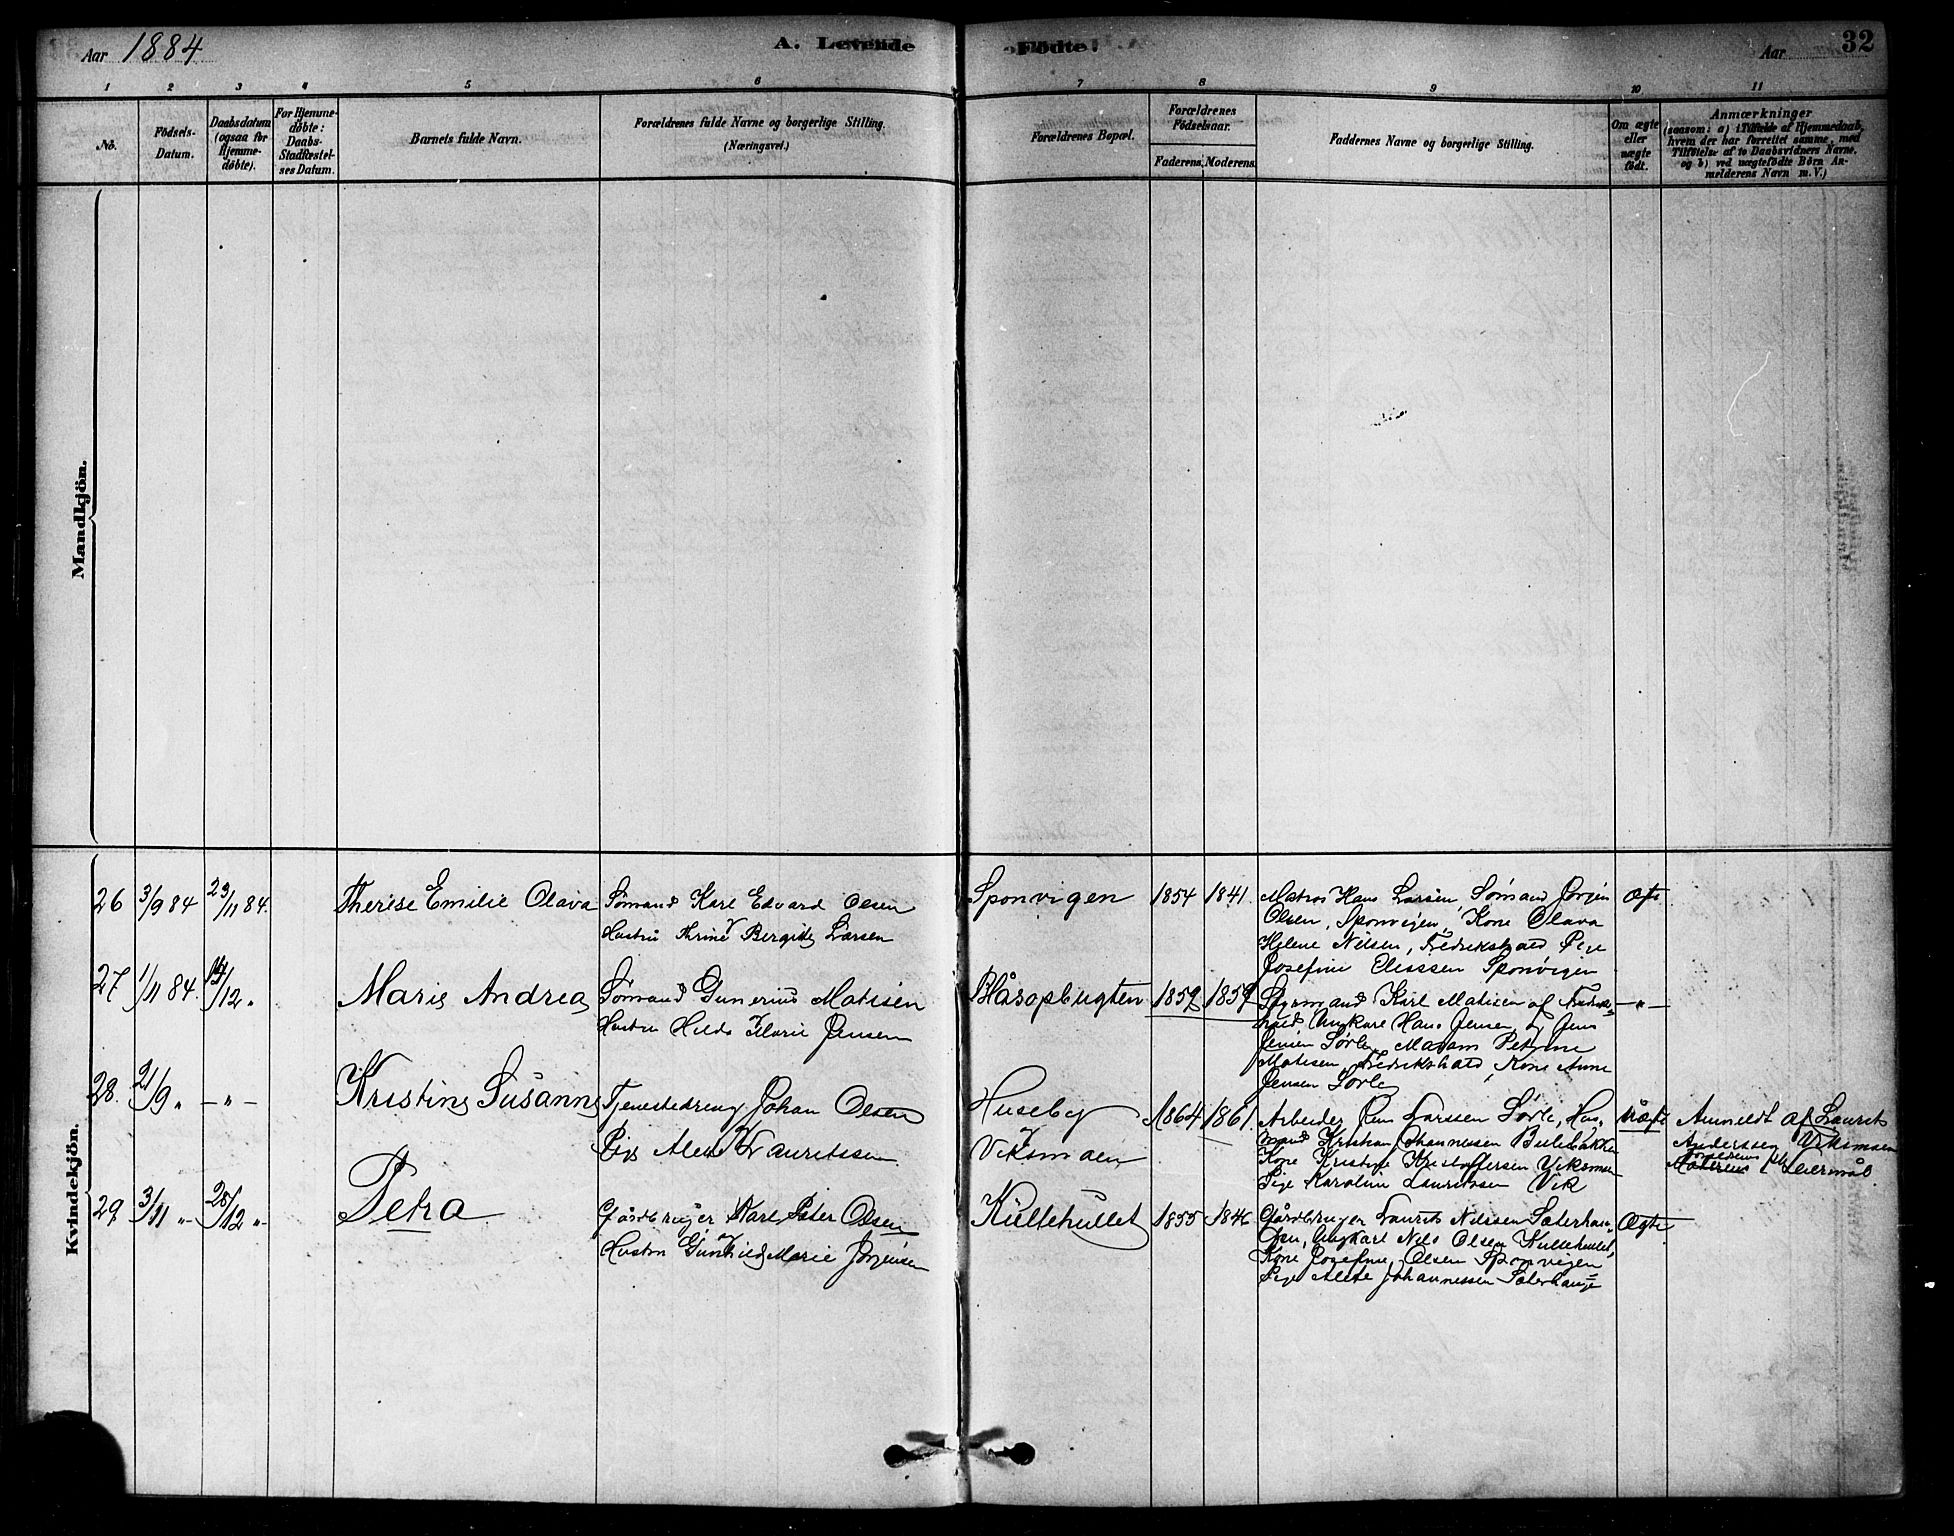 Aar 1884
A. Levende
Fødte.
Aar
32
1 2 3 4 5 6 7 8 9 10 11
No.
Födsels-
Datum.
Daabsdatum
(ogsaa for
Hjemme-
döbte).
For Hjemme-
döbte:
Daabs-
Stadfæstel-
ses Datum.
Barnets fulde Navn.
Forældrenes fulde Navne og borgerlige Stilling.
(Næringsvei.)
Forældrenes Bopæl.
Forældrenes
Fødselsaar.
Faderens. Moderens.
Faddernes Navne og borgerlige Stilling.
Om ægte
eller
uægte
födt.
Anmærkninger
(saasom: a) i Tilfælde af Hjemmedaab,
hvem der har forrettet samme, med
Tilföielse af to Daabsvidners Navne,
og b) ved uægtefödte Börn An-
melderens Navn m. V.)
Mandkjön.
Kvindekjön.
26 3/9 84 23/11 84. Therese Emilie Olava
Sømand Karl Edvard Olsen
Hustru Thrine Bergitte Larsen
Sponvigen 1854 1841.
Matros Hans Larsen, Sømand Jørgen
Olsen, Sponvigen, Kone Olava
Helene Nilsen, Fredrikshald Pige
Josefine Sponvigen
27 1/11 84. /12 „ Marie Andrea
Sømand Gunerius Matisen
Hustru Hilda Marie Jensen
Blåsopbugten 1852 1859
Styrmand Karl Matisen af Fredriks-
hald Ungkarl Hans Jensen og Jens
Jensen Sørle, Madam Petrine
Matisen, Fredrikshald, Kone Anne
Jensen Sørle
— „ —
28. 21/9 „ — „ — Kristine Susanne
Tjenestedreng Johan Olsen
Pige Alette Lauritssen
Huseby
Viksmoen
1864 1861.
Arbeider Jens Larssen Sørle, Hus-
mand Kristian Johannesen
Kone Kristine Kristoffersen Viksmoen
Pige Karoline Lauritssen Vik
uægte
Anmeldt af Laurits
Anderssen Viksmoen
Forældrenes
Moderens 1ste Leiermål
29 3/11 „ 28/12 „ Petra
Gårdbruger Karl Peter Olsen
Hustru Gunhild Marie Jørgensen
Küllehullet 1855 1846
Gårdbruger Laurits Nilssen Sæterhau-
gen, Ungkarl Nils Olsen Küllehullet,
Kone Josefine Olsen Sponvigen
Pige Alette Johannessen Sæterhauge
Ægte